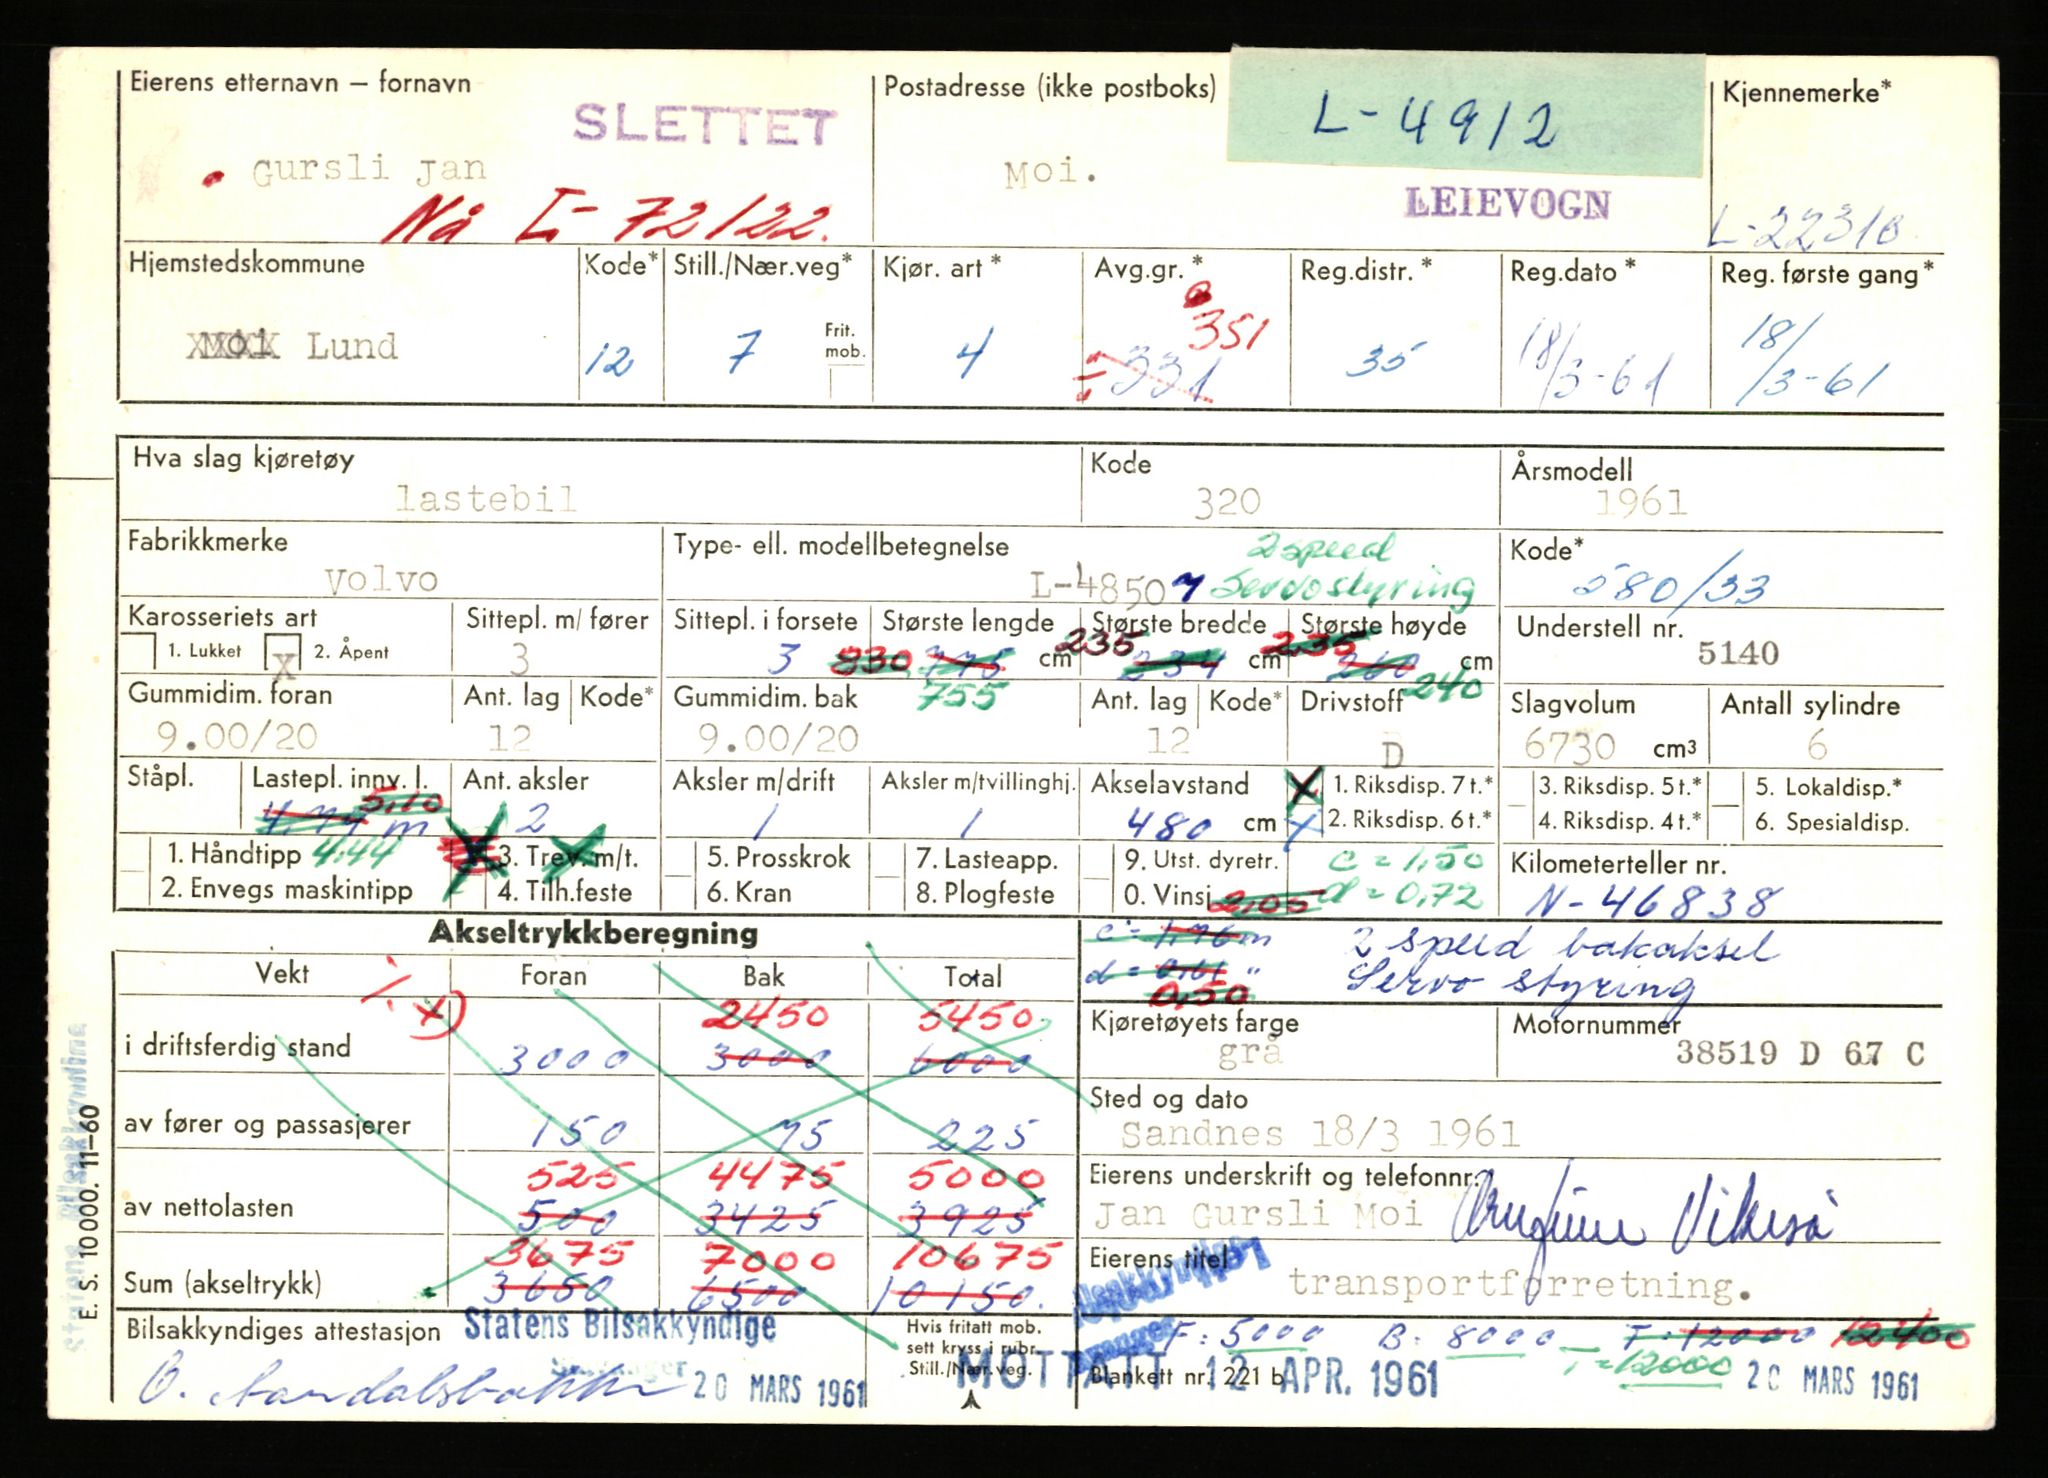 Eierens etternavn – fornavn
SLETTET
Gursli Jan
Nå L- 72122.
Postadresse (ikke postboks)
L-4912
Moi.
LEIEVOGN
Kjennemerke*
L-22310
Hjemstedskommune
Moi Lund
Kode*
12
Still./Nær.veg*
7
Frit. mob.
Kjør. art *
4
Avg.gr.*
351
331
Reg.distr. *
35
Reg.dato *
18/3-61
Reg. første gang*
18/3-61
Hva slag kjøretøy
lastebil
Kode
320
Årsmodell
1961
Fabrikkmerke
Volvo
Type- ell. modellbetegnelse
L-48507
2 speed
Servostyring
Kode*
580/33
Karosseriets art
1. Lukket X 2. Åpent
Sittepl. m/ fører
3
Sittepl. i forsete
3
Største lengde
830 775 cm
755
Største bredde
235 234 cm
Største høyde
235 260 cm
240
Understell nr.
5140
Gummidim. foran
9.00/20
Ant. lag
12
Kode*
Gummidim. bak
9.00/20
Ant. lag
12
Kode*
Drivstoff
D
Slagvolum
6730 cm³
Antall sylindre
6
Ståpl.
Lastepl. innv. l.
5,10
m
4.44
Ant. aksler
2
Aksler m/drift
1
Aksler m/tvillinghj.
1
Akselavstand
480 cm
X 1. Riksdisp. 7 t.*
X 2. Riksdisp. 6 t.*
3. Riksdisp. 5 t.*
4. Riksdisp. 4 t.*
5. Lokaldisp.*
6. Spesialdisp.
1. Håndtipp
2. Envegs maskintipp
3. Trev. m/t.
4. Tilh.feste
5. Prosskrok
6. Kran
7. Lasteapp.
8. Plogfeste
9. Utst. dyretr.
0. Vinsj
c = 1,50
d = 0,72
2,05
Kilometerteller nr.
N-46838
Akseltrykkberegning
c = 1,76 m
d = 0,61 "
0,50
2 speed bakaksel
Servo styring
Vekt Foran Bak Total
2450 5450
i driftsferdig stand 3000 3000 6000
av fører og passasjerer 150 75 225
525 4475 5000
av nettolasten 500 3425 3925
3675 7000 10675
Sum (akseltrykk) 3650 6500 10150.
Kjøretøyets farge
grå
Motornummer
38519 D 67 C
Sted og dato
Sandnes 18/3 1961
Eierens underskrift og telefonnr.
Jan Gursli Moi
Eierens titel
transportforretning.
Bilsakkyndiges attestasjon
Statens Bilsakkyndige
20 MARS 1961
Hvis fritatt mob.
sett kryss i rubr.
Still./Nær.veg.
F: 5000 B: 8000 T: 12000 12400
T = 12000
MOTTATT 12 APR. 1961
Blankett nr. 221 b
20 MARS 1961
E. S. 10 000. 11–60
Statens Bilsakkyndige